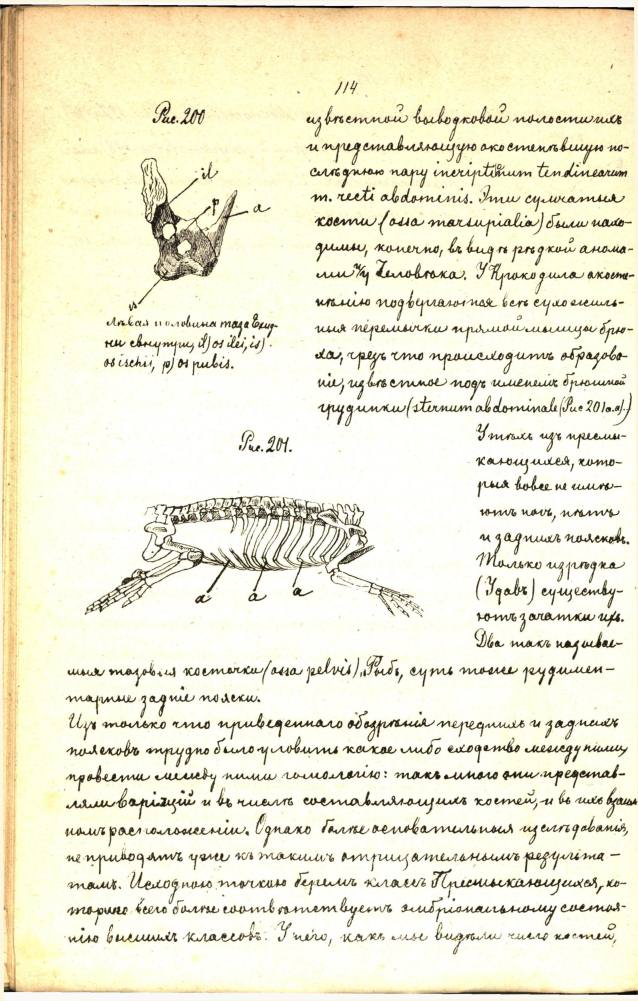 114
Рис. 200
извѣстной выводковой полости ихъ
и представляющую окостенѣвшую по-
слѣднюю пару incriptinum tendinearum
m. recti abdominis. Эти сумчатыя
кости (ossa marsupialia) были нахо-
димы, конечно, въ видѣ рѣдкой анома-
ліи и у Человѣка. У Крокодила окосте-
нѣнію подвергаются всѣ сухожиль-
ныя перемычки прямой мышцы брю-
ха, чрезъ что происходитъ образова-
ніе, извѣстное подъ именемъ брюшной
грудинки (sternum abdominale (Рис 201 a.a).)
il
p
a
is
Лѣвая половина таза Ехид-
ны снутри, il) os ilei, is)
os ischii, p) os pubis.
Рис. 201.
a a a
У тѣхъ изъ пресмы-
кающихся, кото-
рыя вовсе не имѣ-
ютъ ногъ, нѣтъ
и заднихъ поясковъ.
Только изрѣдка
(Удавъ) существу-
ютъ зачатки ихъ.
Два такъ называе-
мыя тазовыя косточки (ossa pelvis), Рыбъ, суть тоже рудимен-
тарные задніе пояски.
Изъ только что приведеннаго обозрѣнія переднихъ и заднихъ
поясковъ трудно было уловить какое либо сходство между ними,
провести между ними гомологію: такъ много они представ-
ляли варіяцій и въ числѣ составляющихъ костей, и въ ихъ взаим
номъ расположеніи. Однако болѣе основательныя изслѣдованія,
не приводятъ уже къ такимъ отрицательнымъ результа-
тамъ. Исходною точкою беремъ классъ Пресмыкающихся, ко-
торые всего болѣе соотвѣтствуетъ эмбріональному состоя-
нію высшихъ классовъ. У него, какъ мы видѣли число костей,